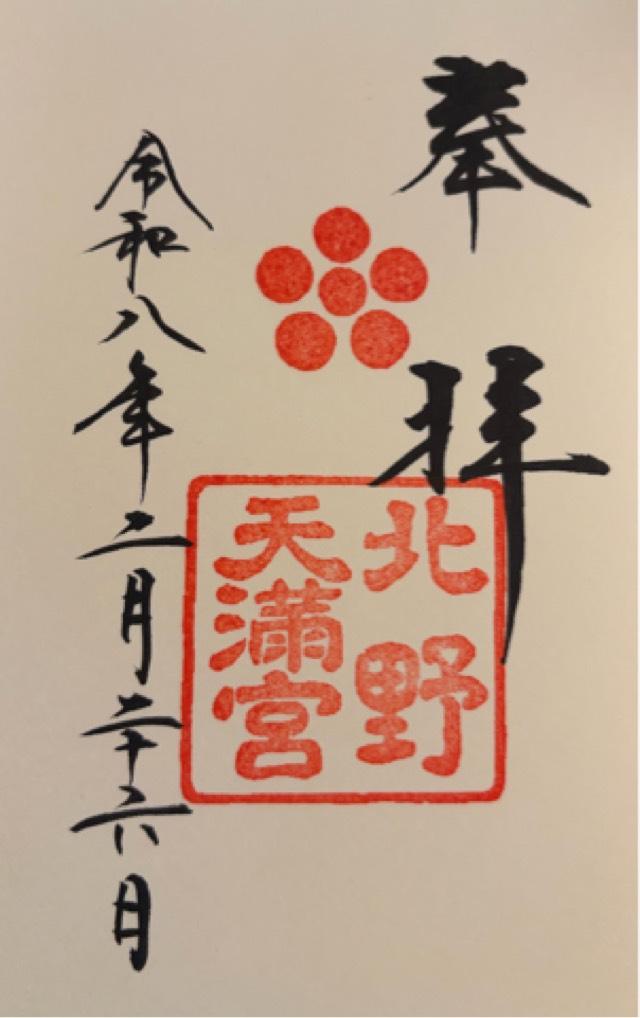 奉拝
北野
天満宮
令和八年二月二十六日